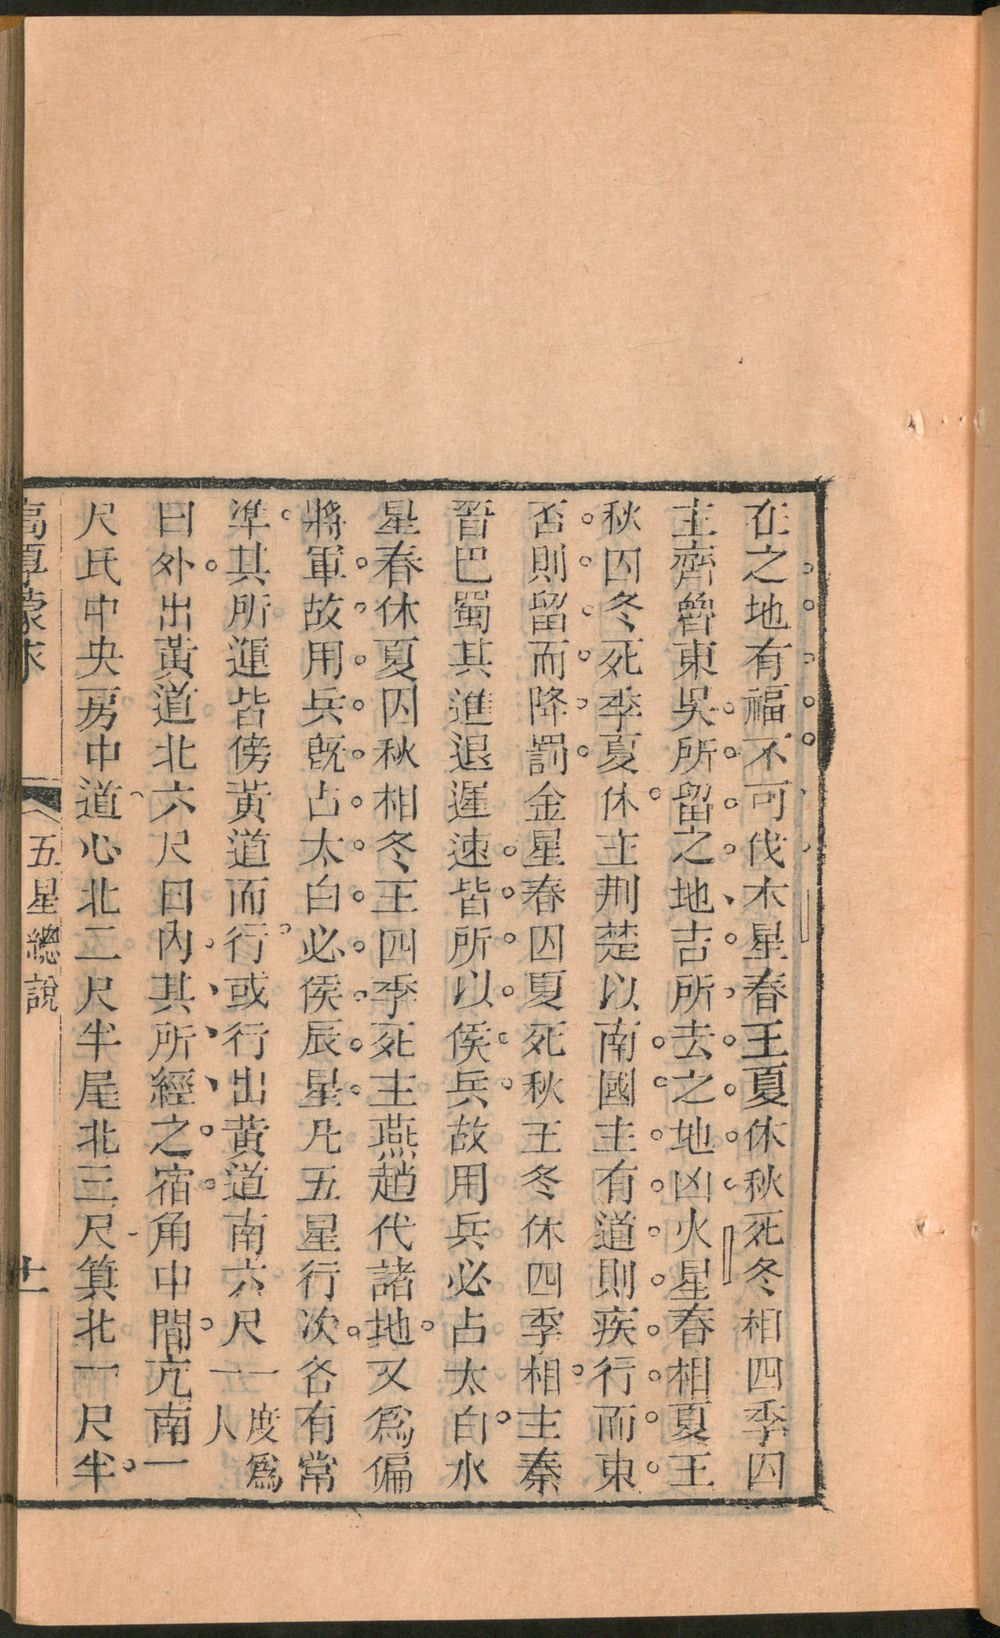 在之地有福不可伐木星春王夏休秋死冬相四季囚
主齊魯東吳所留之地吉所去之地凶火星春相夏王
秋囚冬死季夏休主荆楚以南國主有道則疾行而東
否則留而降罰金星春囚夏死秋王冬休四季相主秦
晉巴蜀其進退遲速皆所以侯兵故用兵必占太白水
星春休夏囚秋相冬王四季死主燕趙代諸地又爲偏
將軍故用兵旣占太白必侯辰星凡五星行次各有常
準其所運皆傍黃道而行或行出黃道南六尺一度爲一人
曰外出黃道北六尺曰內其所經之宿角中間亢南一
尺氐中央房中道心北二尺半尾北三尺箕北一尺半
五星總說
十一